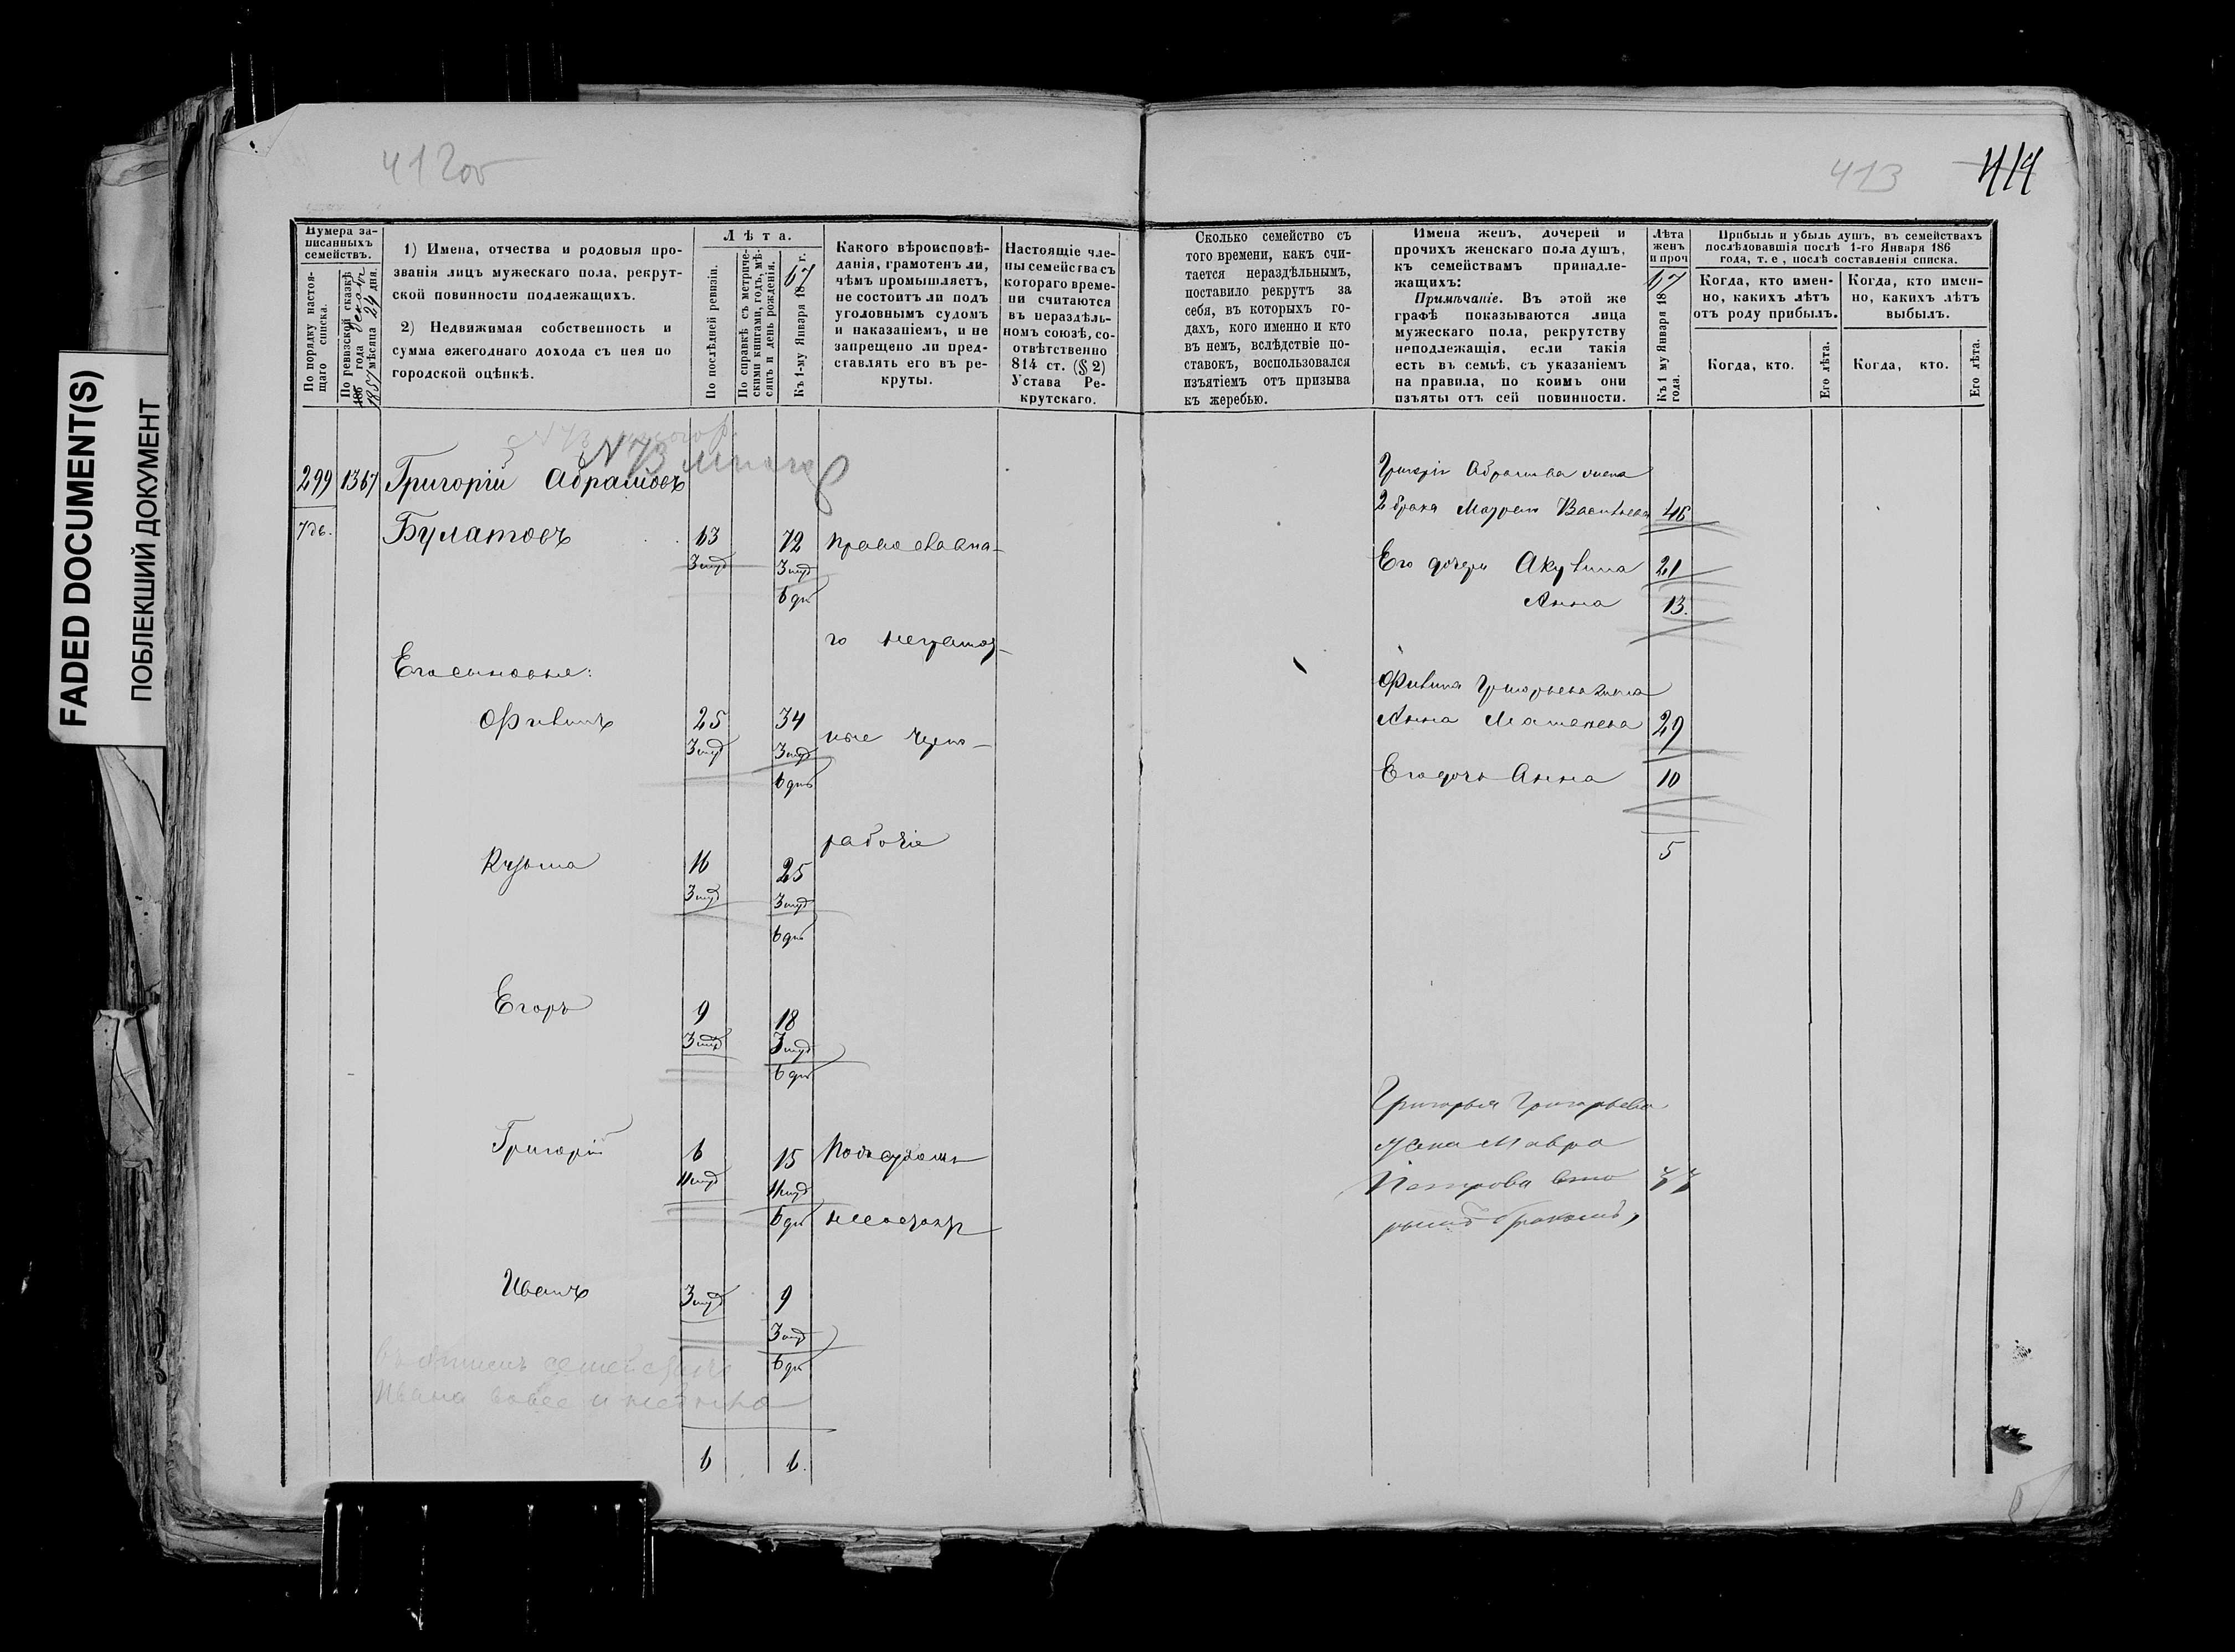 FADED DOCUMENT(S)
ПОБЛЕКШИЙ ДОКУМЕНТ
412об
Нумера записанныхъ семействъ.
По порядку настоящаго списка.
По ревизской сказкѣ
186 года
1857 мѣсяца 24 дня.
1) Имена, отчества и родовыя прозванія лицъ мужескаго пола, рекрутской повинности подлежащихъ.
2) Недвижимая собственность и сумма ежегоднаго дохода съ нея по городской оцѣнкѣ.
Лѣта.
По послѣдней ревизіи.
По справкѣ съ метрическими книгами, годъ, мѣсяцъ и день рожденія.
Къ 1-му Января 1867 г.
Какого вѣроисповѣданія, грамотенъ ли, чѣмъ промышляетъ, не состоитъ ли подъ уголовнымъ судомъ и наказаніемъ, и не запрещено ли представлять его въ рекруты.
Настоящіе члены семейства съ котораго времени считаются въ нераздѣльномъ союзѣ, соотвѣтственно 814 ст. (§ 2) Устава Рекрутскаго.
N 73
299 1367 Григорій Абрамовъ
Булатовъ 63 72 Православна-
3 муд 3 муд
6 дн
го неграмот-
Его сыновья:
25 34
3 муд 3 муд ные черно-
6 дн
рабочіе
Кузьма 16 25
3 муд 3 муд
6 дн
Егоръ 9 18
3 муд 3 муд
6 дн
Григорій 6 15 Подъ судомъ
11 муд 11 муд
6 дн не сост
Иванъ 3 муд 9
3 муд
6 дн
Ивана вовсе и не было
6 6.
413 414
Сколько семейство съ того времени, какъ считается нераздѣльнымъ, поставило рекрутъ за себя, въ которыхъ годахъ, кого именно и кто въ немъ, вслѣдствіе поставокъ, воспользовался изъятіемъ отъ призыва къ жеребью.
Имена женъ, дочерей и прочихъ женскаго пола душъ, къ семействамъ принадлежащихъ:
Примѣчаніе. Въ этой же графѣ показываются лица мужескаго пола, рекрутству неподлежащія, если такія есть въ семьѣ, съ указаніемъ на правила, по коимъ они изъяты отъ сей повинности.
Лѣта женъ и проч
Къ 1 му Января 1867 года.
Прибыль и убыль душъ, въ семействахъ послѣдовавшія послѣ 1-го Января 186 года, т. е, послѣ составленія списка.
Когда, кто именно, какихъ лѣтъ отъ роду прибылъ.
Когда, кто именно, какихъ лѣтъ выбылъ.
Когда, кто.
Его лѣта.
Когда, кто.
Его лѣта.
Григорія Абрамова жена
2 брака Васильева 46
Его дочери Акулина 21
Анна 13.
Григорьева жена
Анна 29
Его дочь Анна 10
5
Григорья Григорьева
жена Мавра
Петрова вто
рымъ бракомъ,